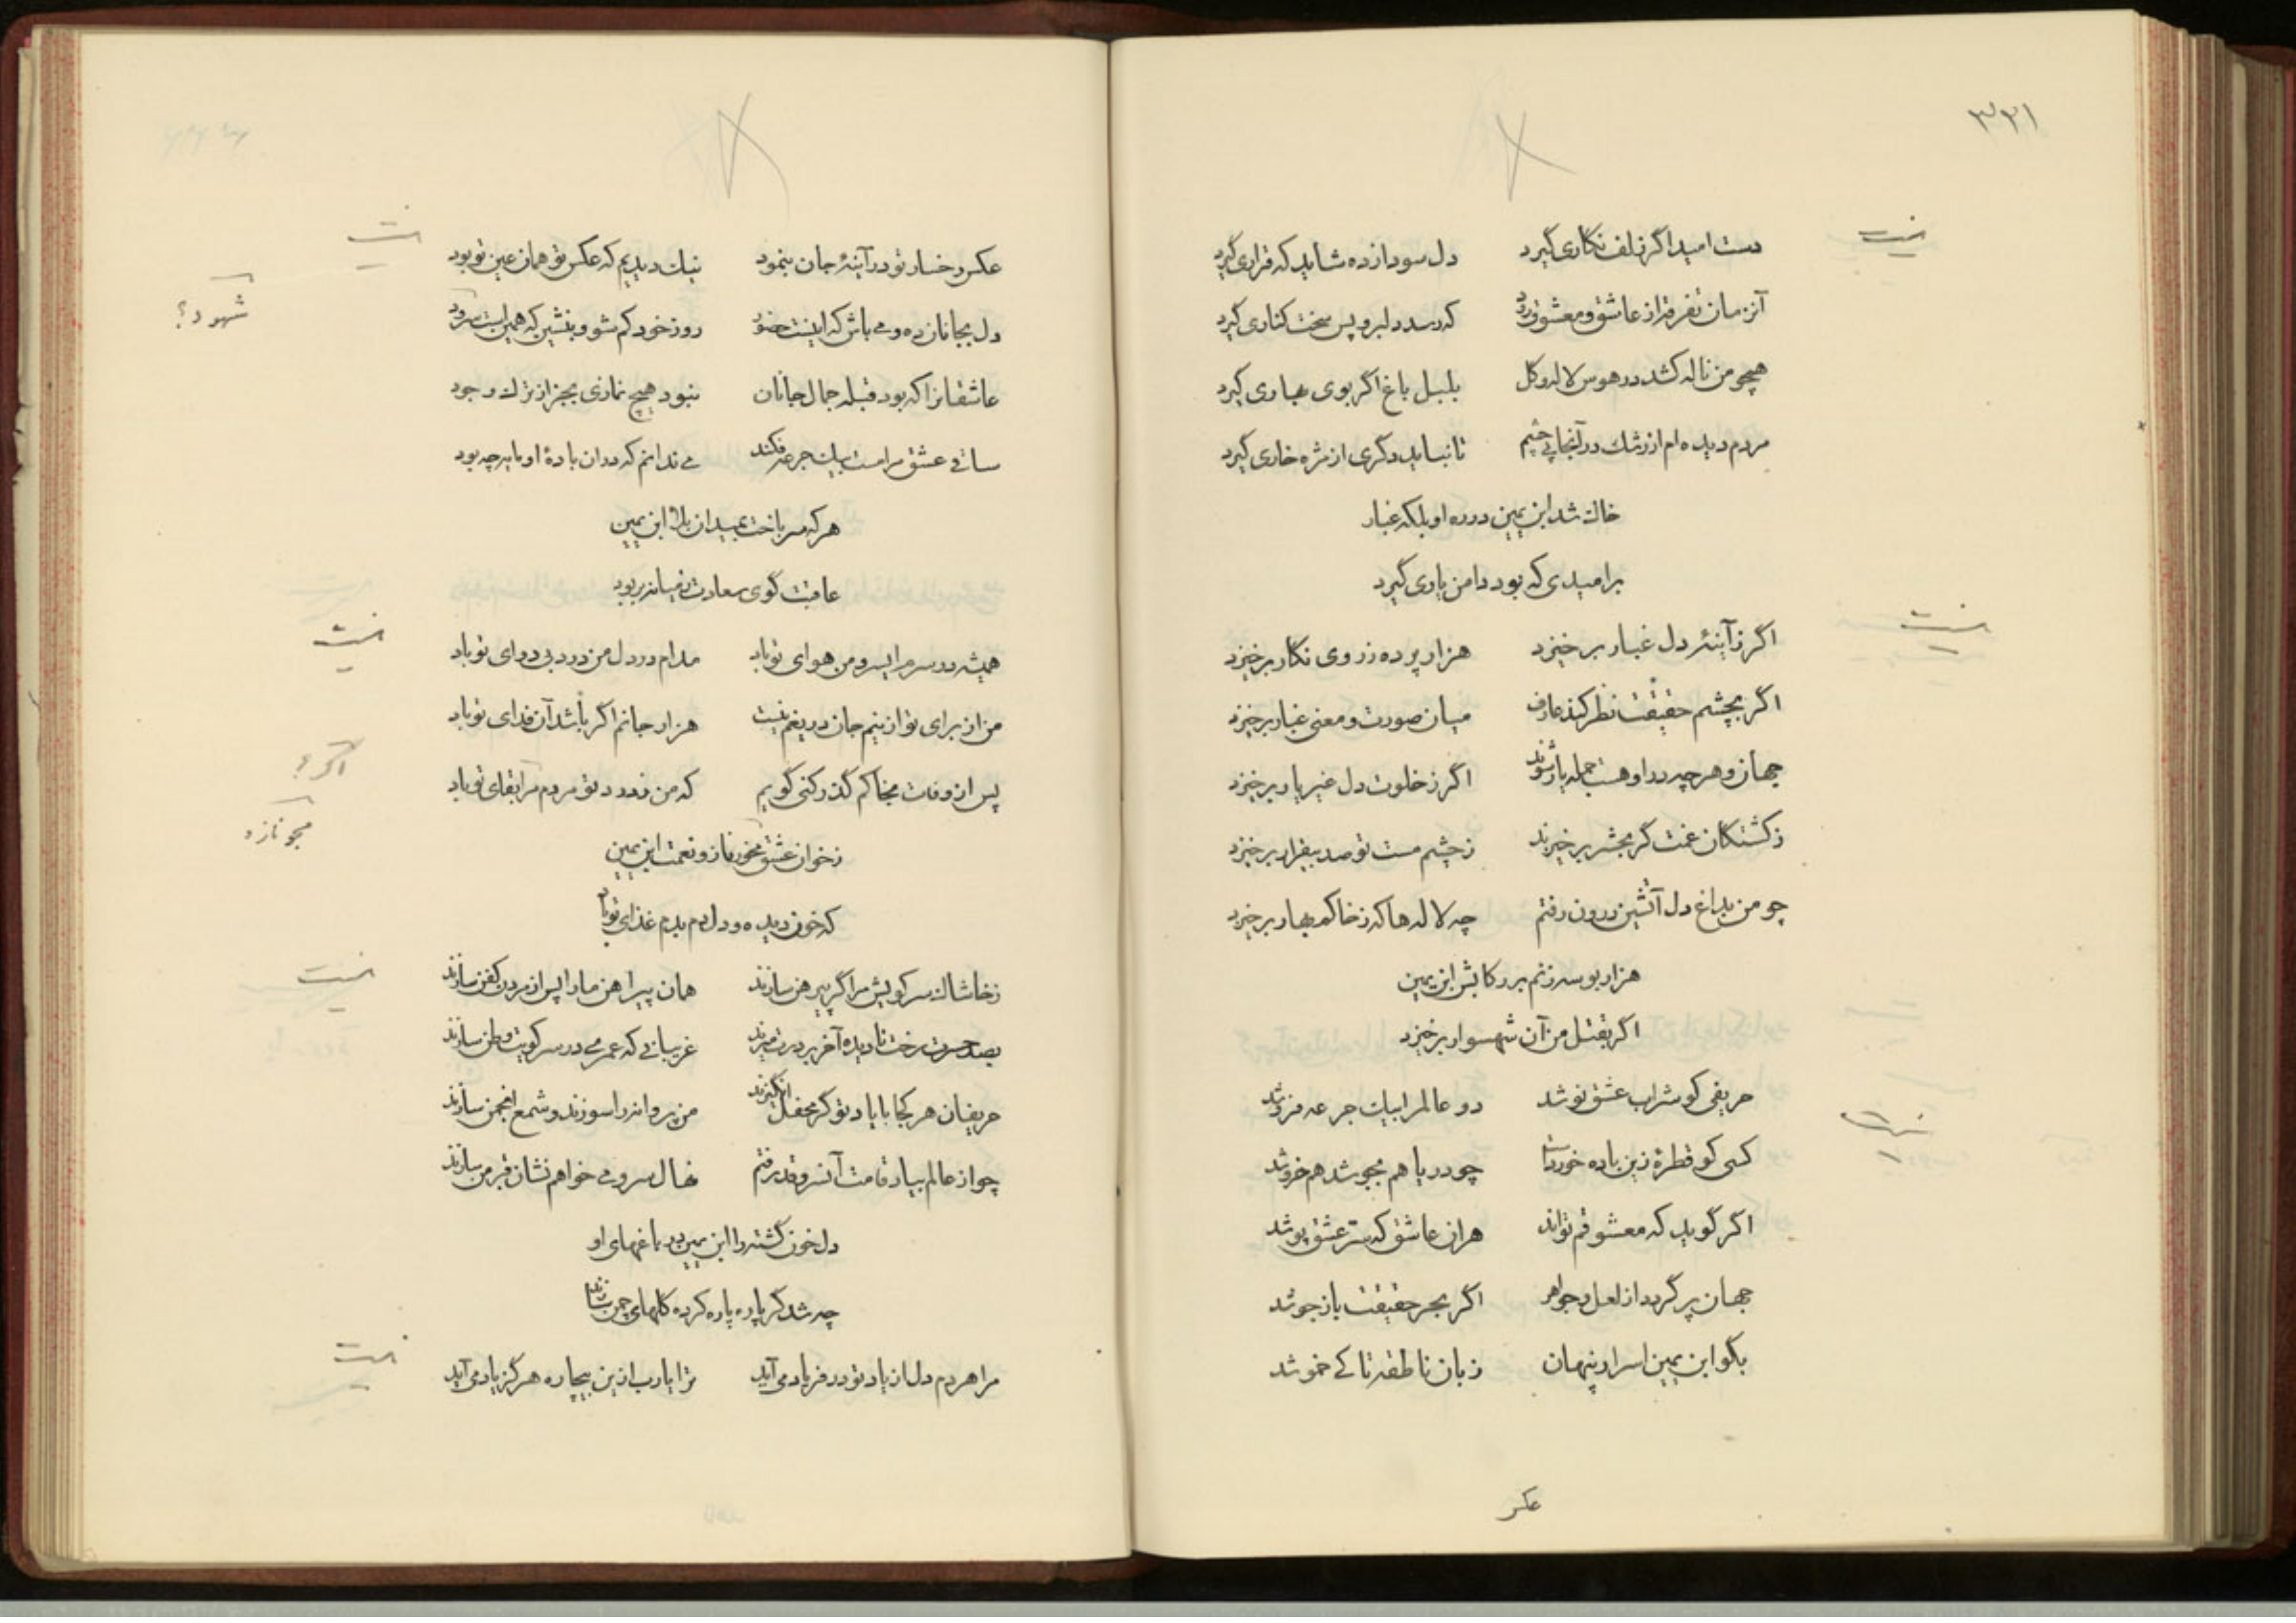 ۳۳۱
دست امید اگر زلف نگاری گیرد دل سودازده شاید که قراری گیرد
آنزمان تفرقه از عاشق و معشوق رود که رسد دلبر و پس سخت کناری گیرد
همچو من ناله کشد در هوس لاله و گل بلبل باغ اگر بوی بهاری گیرد
مردم دیده‌ام از رشک در آنجا پی چشم تا نیاید دگری از مژه خاری گیرد
خاک شد ابن یمین در ره او بلکه غبار
بر امیدی که بود دامن یاری گیرد
اگر ز آینهٔ دل غبار برخیزد هزار پرده ز روی نگار برخیزد
اگر بچشم حقیقت نظر کند عارف میان صورت و معنی غبار برخیزد
جهان و هر چه در او هست جمله یار شوند اگر ز خلوت دل غیر یار برخیزد
ز کشتگان غمت گر بحشر برخیزند ز چشم مست تو صد بیقرار برخیزد
چو من بداغ دل آتشین درون رفتم چه لاله‌ها که ز خاکم بهار برخیزد
هزار بوسه زنم بر رکابش ابن یمین
اگر بقتل من آن شهسوار برخیزد
حریفی کو شراب عشق نوشد دو عالم را بیک جرعه فروشد
کسی کو قطرهٔ زین باده خوردست چو دریا هم بجوشد هم خروشد
اگر گوید که معشوقم تواند هران عاشق که ستر عشق پوشد
جهان پر گردد از لعل و جواهر اگر بحر حقیقت باز جوشد
بگو ابن یمین اسرار پنهان زبان ناطقه تا کے خموشد
عکس
عکس رخسار تو در آینهٔ جان بنمود نیک دیدیم که عکس تو همان عین تو بود
شهود؟
دل بجانان ده و می باش که اینست حضور رو ز خود گم شو و بنشین که همین است سرود
عاشقانرا که بود قبله جمال جانان نبود هیچ نمازی بجز از ترک وجود
ساقی عشق مرا مست بیک جرعه فکند می ندانم که در ان بادهٔ او مایه چه بود
هر که سر باخت بمیدان بلا ابن یمین
عاقبت گوی سعادت ز میانه بربود
همیشه در سر من ای سرو من هوای تو باد مدام در دل من درد بی دوای تو باد
من از برای تو از نیم جان دریغم نیست هزار جانم اگر باشد آن فدای تو باد
اگر؟
پس از وفات بخاکم گذر کنی گویم که من ز درد تو مردم ترا بقای تو باد
مجو نازه
ز خوان عشق مخور ناز و نعمت ابن یمین
که خون دیده و دل دم بدم غذای تو باد
ز خاشاک سر کویش مرا گر پیرهن سازند همان پیراهن ما را پس از مردن کفن سازند
بصد حسرت رخت نادیده آخر بر درت میرند غریبانی که عمری در سر کویت وطن سازند
حریفان هر کجا با یاد تو گر محفل انگیزند من پروانه را سوزند و شمع انجمن سازند
چو از عالم بیاد قامت آن سرو قد رفتم نهال سروی خواهم نشان قبر من سازند
دل خون گشته را ابن یمین در باغهای او
چه شد گر پاره پاره کرده گلهای چمن سازند
مرا هر دم دل از یاد تو در فریاد می‌آید ترا یارب ازین بیچاره هرگز یاد می‌آید